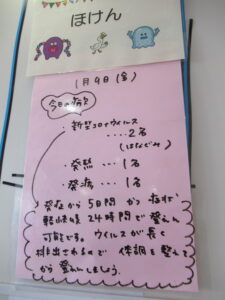 ほけん
1月9日(金)
今日の病欠
・新型コロナウイルス
・・・・2名
(はなぐみ)
・発熱・・・1名
・発疹・・・1名
発症から5日間かつ症状
軽快後24時間で登えん
可能です。ウイルスが長く
排出されるので 体調を整えて
から登えんしましょう。